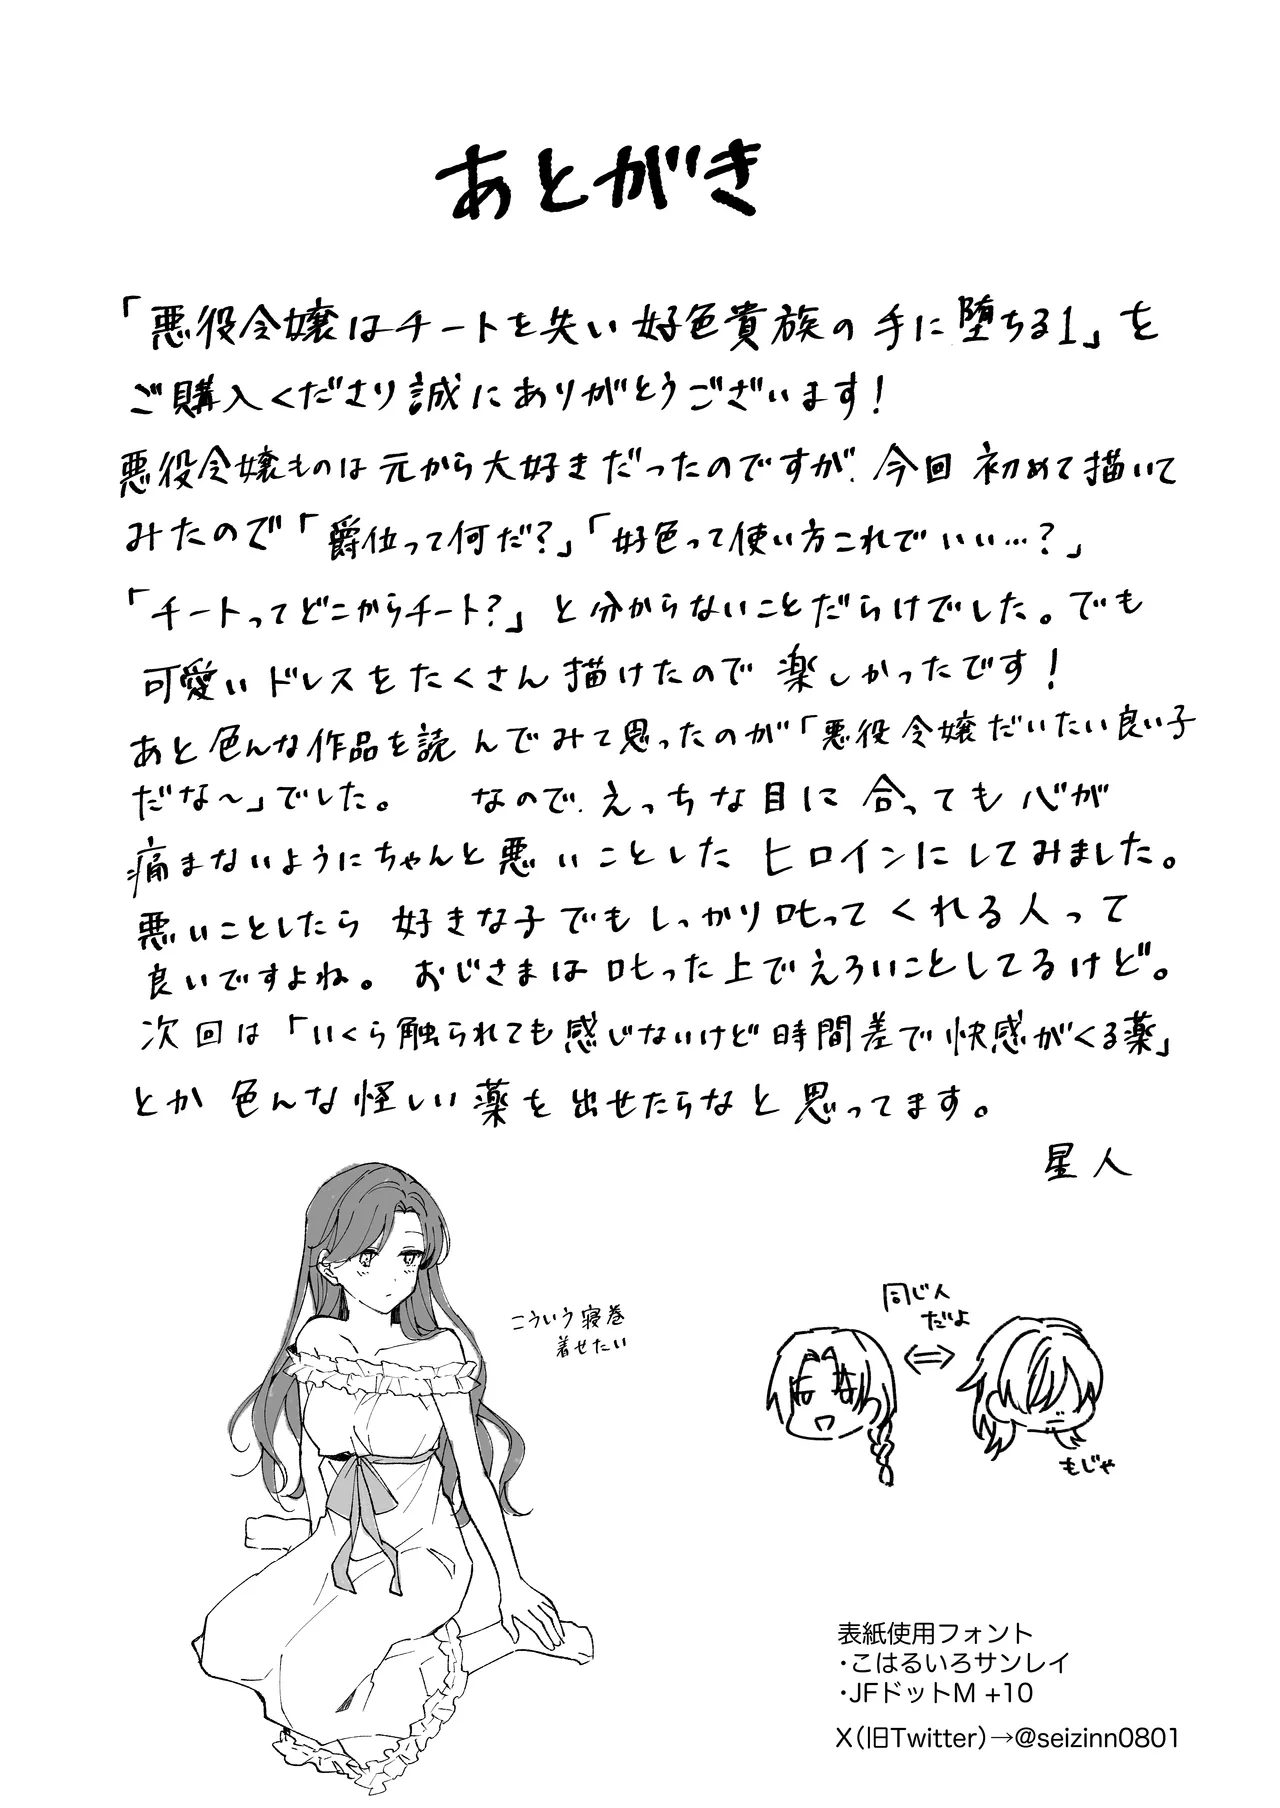 あとがき
「悪役令嬢はチートを失い好色貴族の手に堕ちる1」を
ご購入くださり誠にありがとうございます!
悪役令嬢ものは元から大好きだったのですが、今回初めて描いて
みたので「爵位って何だ?」「好色って使い方これでいい…?」
「チートってどこからチート?」と分からないことだらけでした。でも
可愛いドレスをたくさん描けたので楽しかったです!
あと色んな作品を読んでみて思ったのが「悪役令嬢だいたい良い子
だな〜」でした。 なので、えっちな目に合っても心が
痛まないようにちゃんと悪いことしたヒロインにしてみました。
悪いことしたら好きな子でもしっかり叱ってくれる人って
良いですよね。おじさまは叱った上でえろいことしてるけど。
次回は「いくら触られても感じないけど時間差で快感がくる薬」
とか色んな怪しい薬を出せたらなと思ってます。
星人
こういう寝巻
着せたい
同じ人
だよ
もじゃ
表紙使用フォント
・こはるいろサンレイ
・JFドットM +10
X(旧Twitter)→@seizinn0801